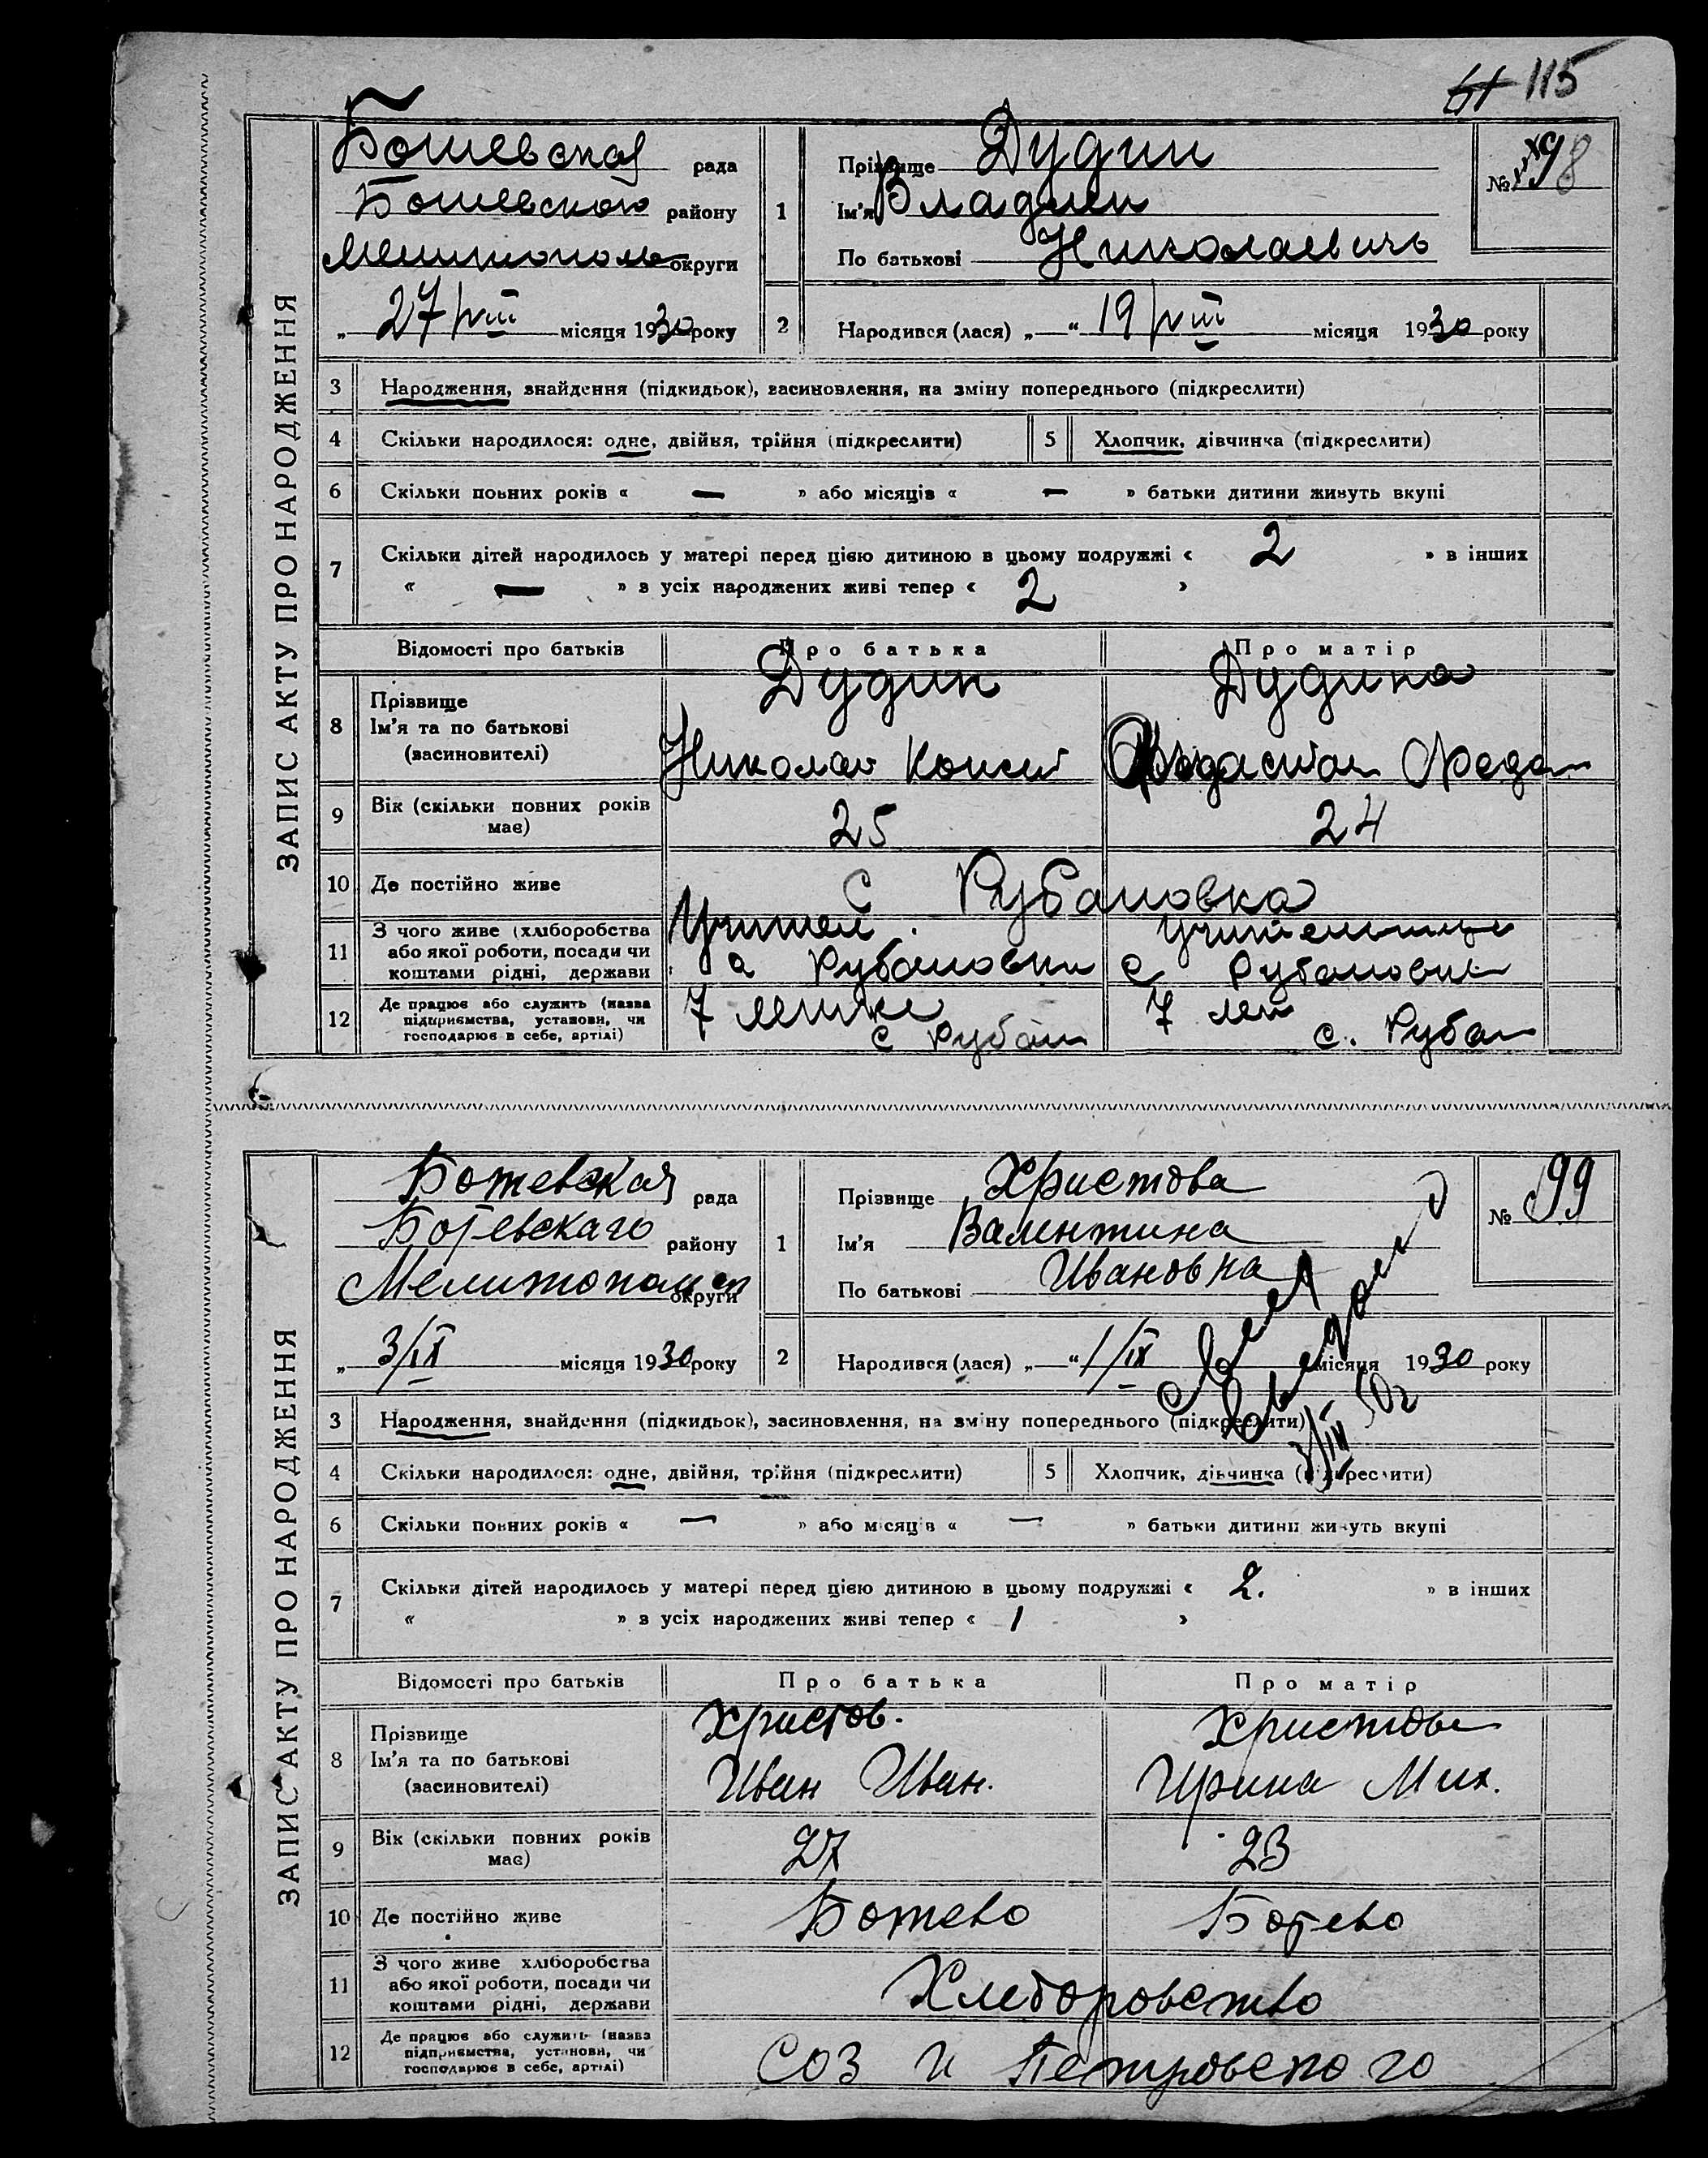 115
ЗАПИС АКТУ ПРО НАРОДЖЕННЯ
Ботевская рада
Ботевского району
Мелитополь округи
„ 27/VIII місяця 1930 року
1
Прізвище Дудин
Ім'я Владлен
По батькові Николаевичь
№ 98
2 Народився (лася) „ — “ 19/VIII місяця 1930 року
3 Народження, знайдення (підкидьок), засиновлення, на зміну попереднього (підкреслити)
4 Скільки народилося: одне, двійня, трійня (підкреслити)
5 Хлопчик, дівчинка (підкреслити)
6 Скільки повних років « — » або місяців « — » батьки дитини живуть вкупі
7 Скільки дітей народилось у матері перед цією дитиною в цьому подружжі « 2 » в інших
« — » з усіх народжених живі тепер « 2 »
Відомості про батьків Про батька Про матір
8 Прізвище Дудин Дудина
Ім'я та по батькові Николай
(засиновителі)
9 Вік (скільки повних років має) 25 24
10 Де постійно живе с Рубановка
11 З чого живе (хліборобства Учител учительница
або якої роботи, посади чи Рубановки с Рубановки
коштами рідні, держави
12 Де працює або служить (назва 7 летке 7 лет
підприємства, установи, чи с Рубан с. Рубан
господарює в себе, артілі)
ЗАПИС АКТУ ПРО НАРОДЖЕННЯ
Ботевская рада
Ботевскаго району
Мелитопольск округи
„ 3/IX місяця 1930 року
1
Прізвище Христова
Ім'я Валентина
По батькові Ивановна
№ 99
2 Народився (лася) „ — “ 1/IX місяця 1930 року
3 Народження, знайдення (підкидьок), засиновлення, на зміну попереднього (підкреслити)
4 Скільки народилося: одне, двійня, трійня (підкреслити)
5 Хлопчик, дівчинка (підкреслити)
6 Скільки повних років « — » або місяців « — » батьки дитини живуть вкупі
7 Скільки дітей народилось у матері перед цією дитиною в цьому подружжі « 2. » в інших
« » з усіх народжених живі тепер « 1 »
Відомості про батьків Про батька Про матір
8 Прізвище Христов. Христова
Ім'я та по батькові Иван Иван. Ирина Мих.
(засиновителі)
9 Вік (скільки повних років має) 27 23
10 Де постійно живе Ботево Ботево
11 З чого живе хліборобства
або якої роботи, посади чи Хлеборобство
коштами рідні, держави
12 Де працює або служить (назва
підприємства, установи, чи СОЗ и Петровского
господарює в себе, артілі)